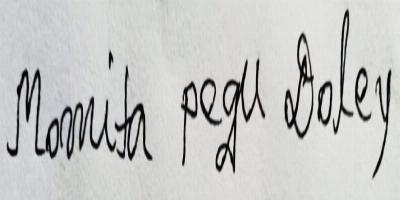 Momita pegu Doley